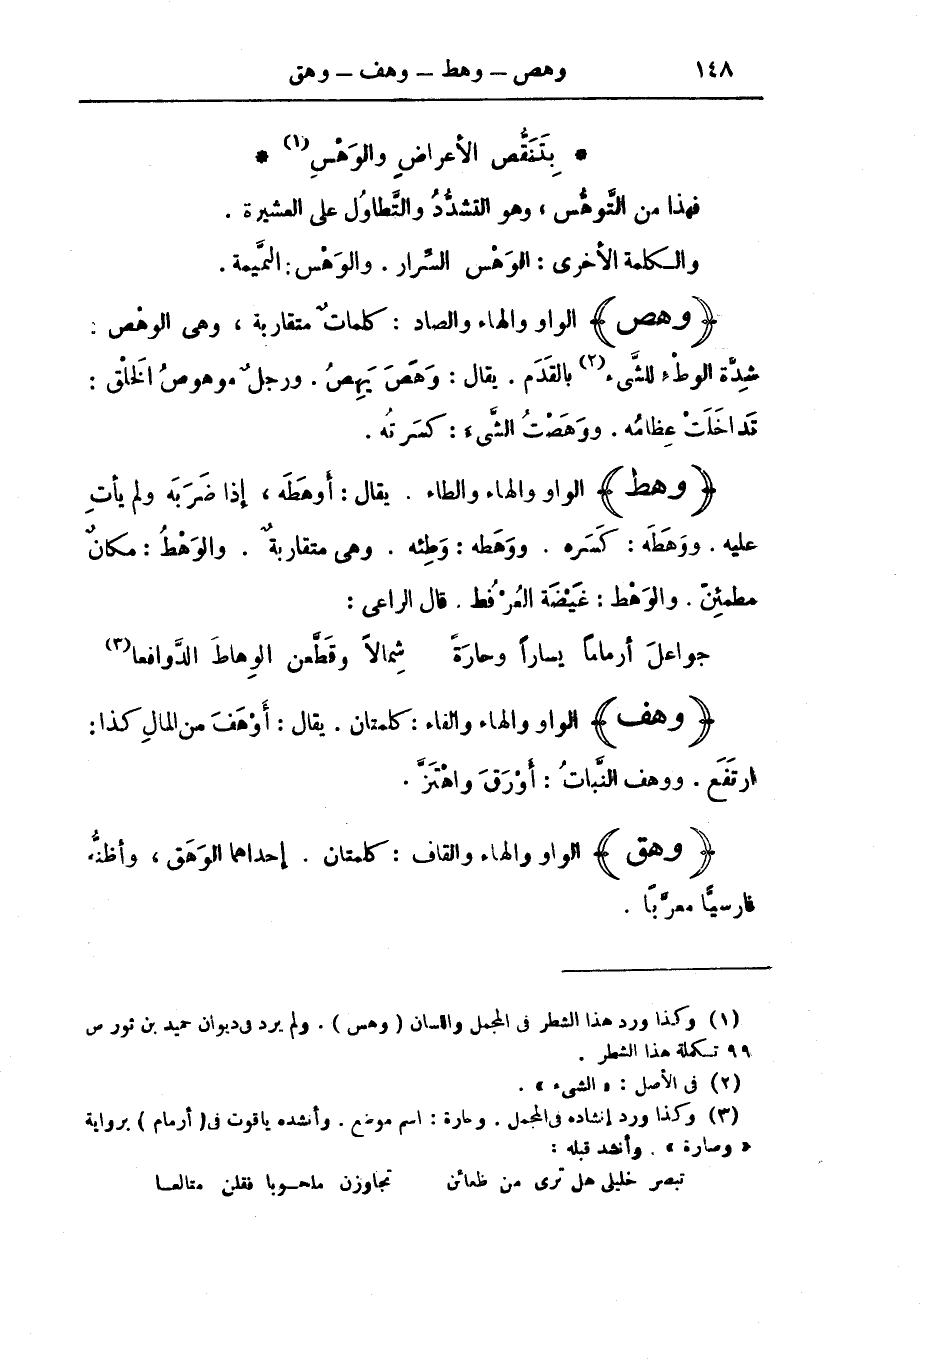 ١٤٨ وهص – وهط – وهف – وهق
* بِتَنَقُّص الأعراضِ والوَهْسِ(١) *
فهذا من التَّوهُّس ، وهو التشدُّدُ والتَّطاوُل على العشيرة .
والكلمة الأخرى : الوَهْس السِّرار . والوَهْس : النَّميمة .
﴿ وهص ﴾ الواو والهاء والصاد : كلماتٌ متقاربة ، وهى الوهْص :
شِدَّة الوطْء للشَّىء(٢) بالقَدَم . يقال : وَهَصَ يَهِصُ . ورجلٌ موهوصُ الخَلْق :
تَداخَلَتْ عِظامُه . ووَهَصْتُ الشَّىءَ : كسَرتُه .
﴿ وهط ﴾ الواو والهاء والطاء . يقال : أَوهَطَه ، إذا ضَرَبَه ولم يأتِ
عليه . ووَهَطَه : كَسَره . ووَهَطه : وَطِئه . وهى متقاربةٌ . والوَهْطُ : مكانٌ
مطمئِنّ . والوَهْط : غَيْضَة العُرْفُط . قال الراعى :
جواعلَ أرماماً يساراً وحارَةً شِمالاً وقَطَّعن الوِهاطَ الدَّوافعا(٣)
﴿ وهف ﴾ الواو والهاء والفاء : كلمتان . يقال : أَوْهَفَ من المالِ كذا :
ارتَفَع . ووهف النَّباتُ : أَوْرَقَ واهْتَزَّ .
﴿ وهق ﴾ الواو والهاء والقاف : كلمتان . إحداهما الوَهَق ، وأظنُّه
فارسيًّا معرَّبًا .
(١) وكذا ورد هذا الشطر فى المجمل واللسان ( وهس ) . ولم يرد فى ديوان حميد بن ثور ص
٩٩ تكملة هذا الشطر .
(٢) فى الأصل : « الشىء » .
(٣) وكذا ورد إنشاده فى المجمل . وحارة : اسم موضع . وأنشده ياقوت فى ( أرمام ) برواية
« وصارة » . وأنشد قبله :
تبصر خليلى هل ترى من ظعائن تجاوزن ملحوبا فقلن متالعا